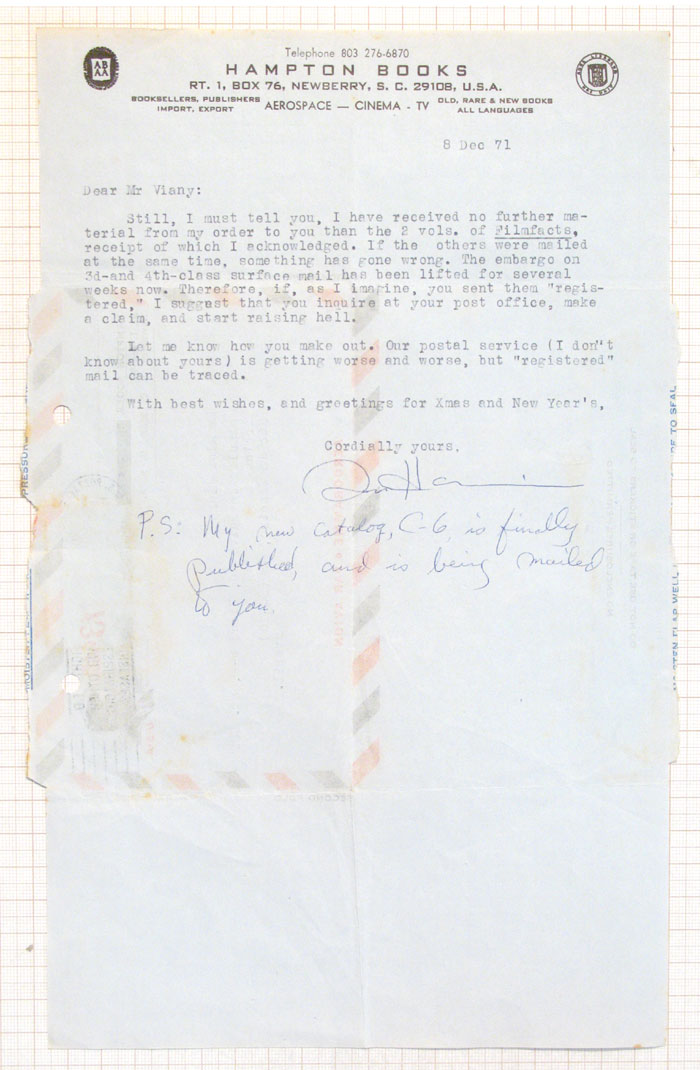 Telephone 803 276-6870
ABAA
HAMPTON BOOKS
RT. 1, BOX 76, NEWBERRY, S. C. 29108, U.S.A.
BOOKSELLERS, PUBLISHERS
IMPORT, EXPORT
AEROSPACE — CINEMA - TV
OLD, RARE & NEW BOOKS
ALL LANGUAGES
8 Dec 71
Dear Mr Viany:
Still, I must tell you, I have received no further ma-
terial from my order to you than the 2 vols. of Filmfacts,
receipt of which I acknowledged. If the others were mailed
at the same time, something has gone wrong. The embargo on
3d-and 4th-class surface mail has been lifted for several
weeks now. Therefore, if, as I imagine, you sent them "regis-
tered," I suggest that you inquire at your post office, make
a claim, and start raising hell.
Let me know how you make out. Our postal service (I don"t
know about yours) is getting worse and worse, but "registered"
mail can be traced.
With best wishes, and greetings for Xmas and New Year's,
Cordially yours,
P.S: My new catalog, C-6, is finally
published, and is being mailed
to you.